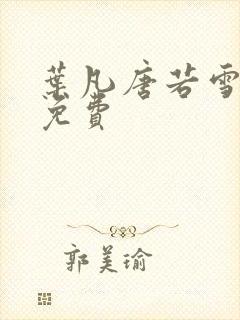 葉凡唐若雪
免費
郭美瑜